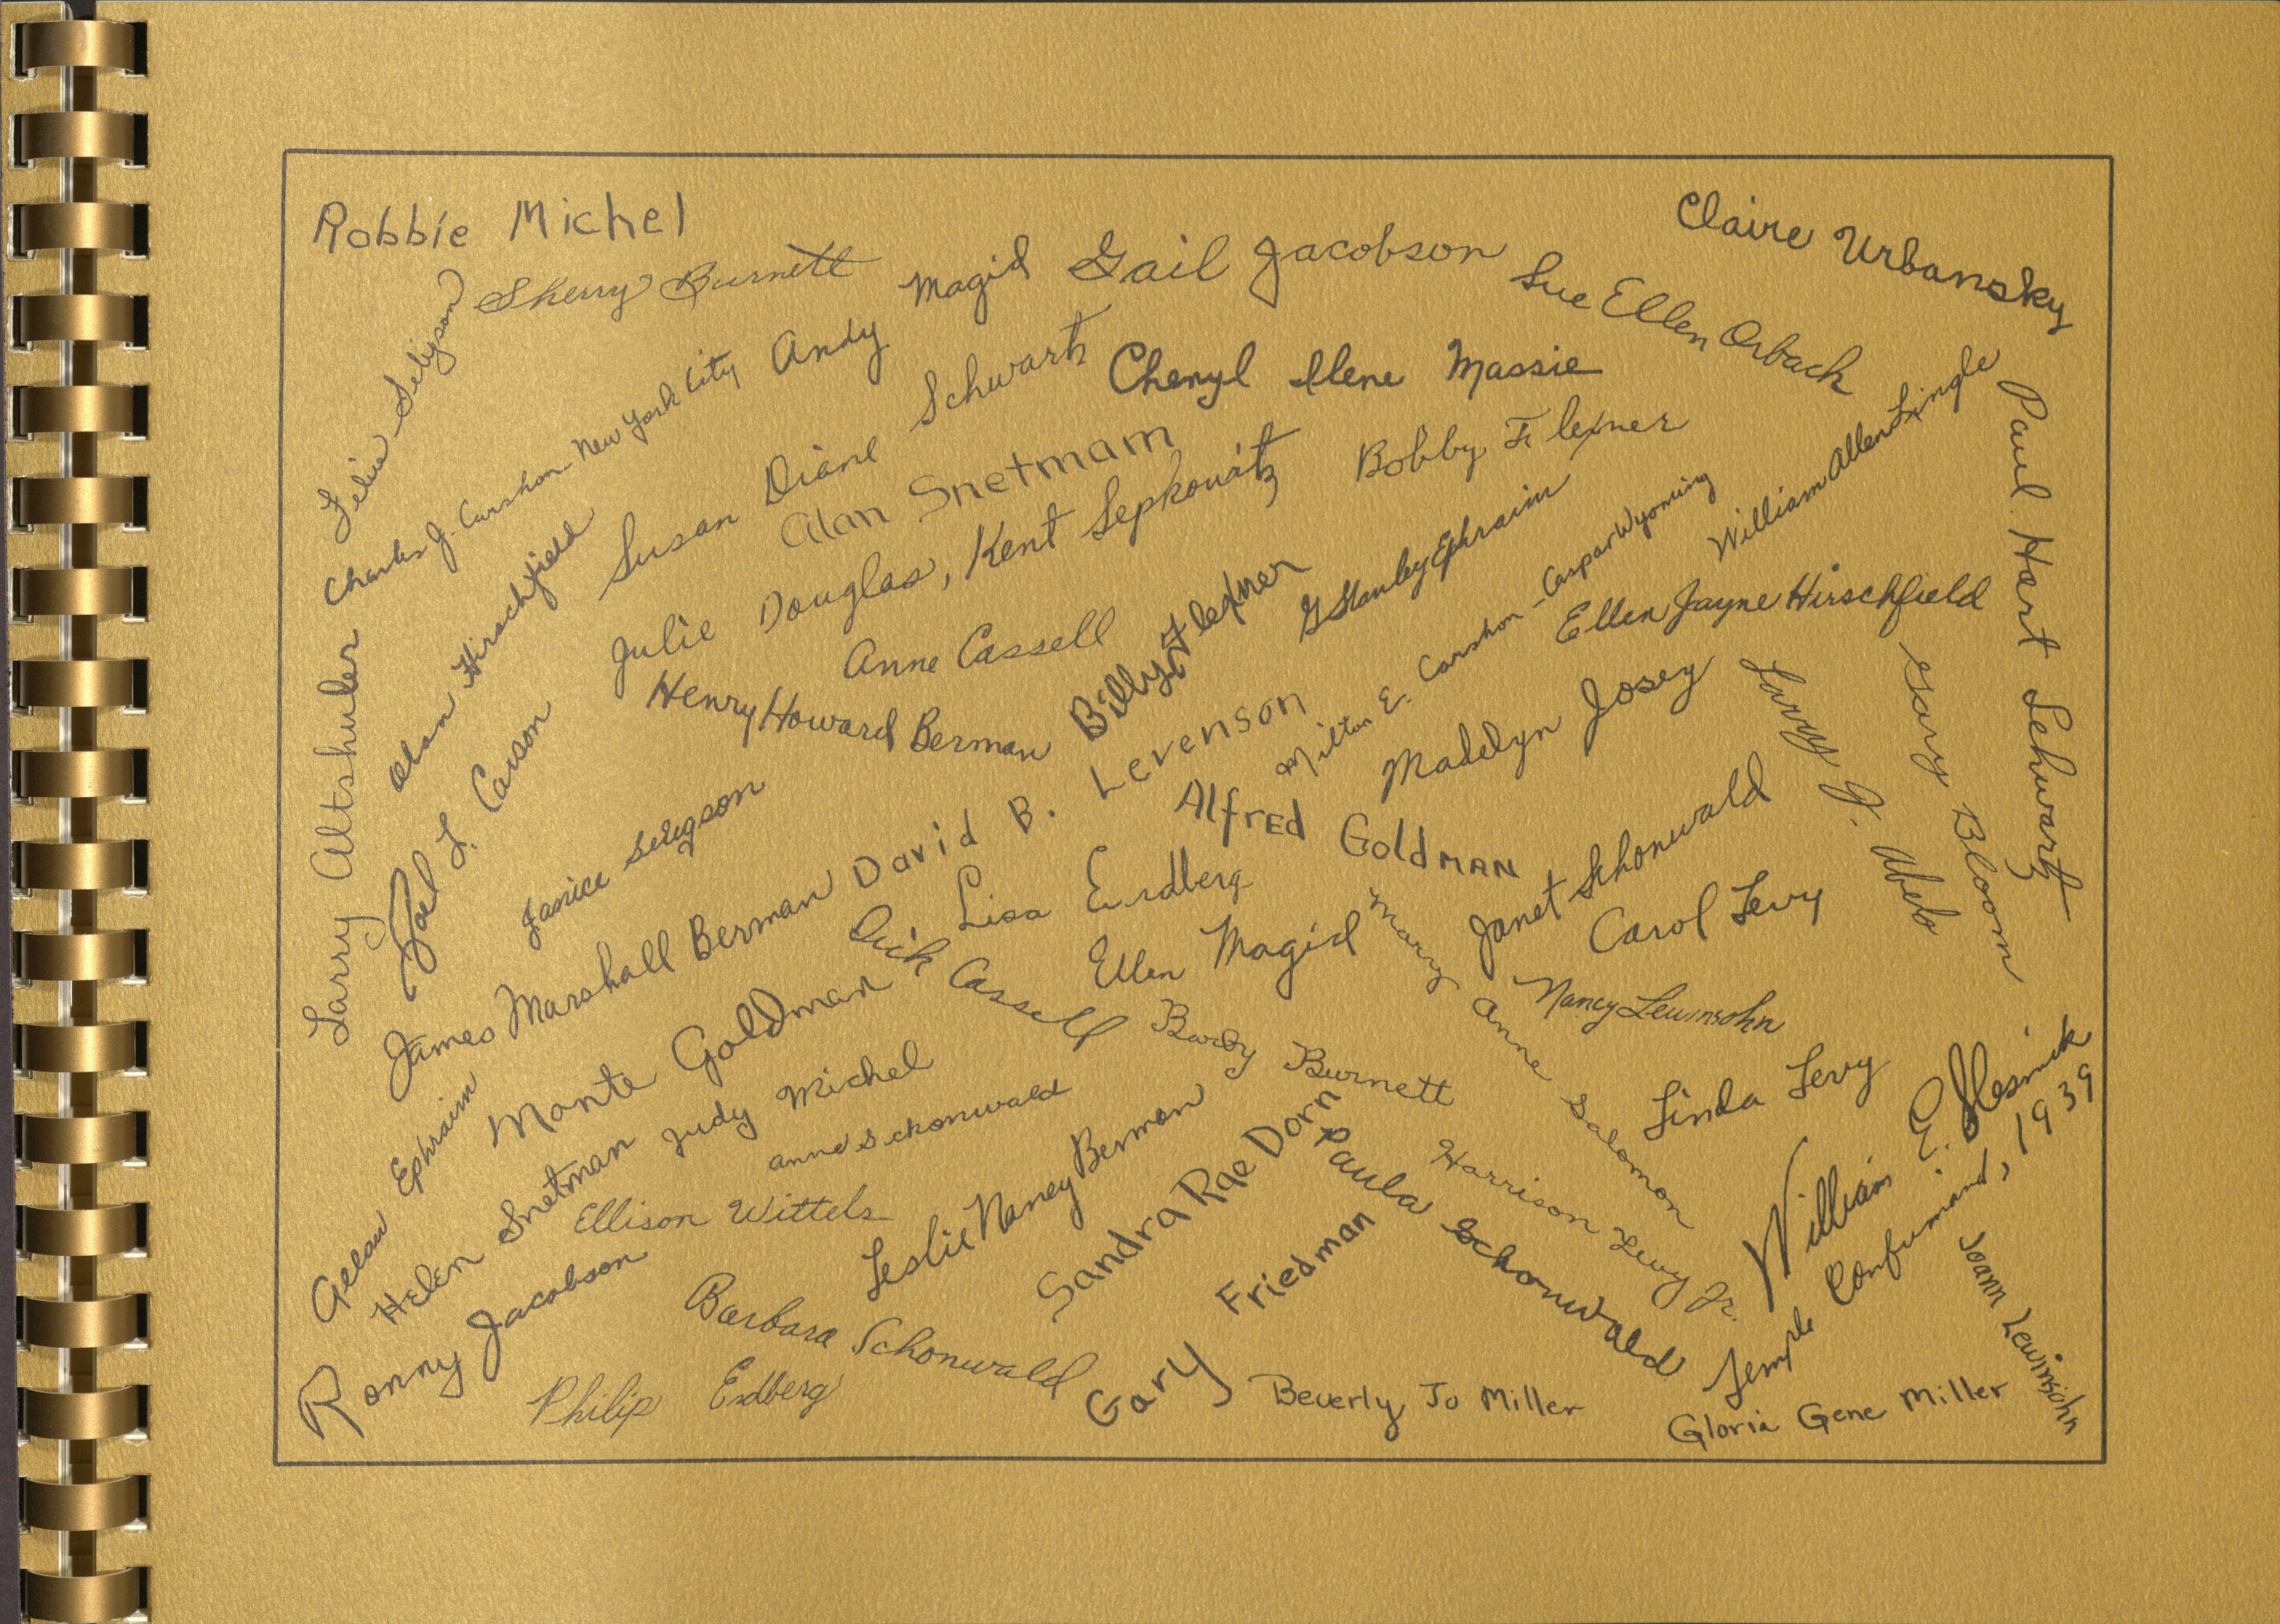 Robbie Michel
Claire Urbansky
Sherry Burnett
Andy Magid
Gail Jacobson
Sue Ellen Orbach
Seligson
Charles J. Carshon - New York City
Susan Diane Schwartz
Cheryl Ilene Massie
William Allen Lingle
Paul Hart Schwartz
Alan Snetmam
Bobby Flexner
Alan Hirschfield
Julie Douglas, Kent Sepkowitz
G Stanley Ephraim
Milton E. Carshon - Caspar Wyoming
Ellen Jayne Hirschfield
Larry Altshuler
Anne Cassell
Billy Flexner
Henry Howard Berman
Madelyn Josey
Larry J.
Gary Bloom
Joel L. Carson
Janice Seligson
David B. Levenson
Alfred Goldman
Janet Schonwald
James Marshall Berman
Lisa Erdberg
Carol Levy
Dick Cassell
Ellen Magid
Mary Anne Salomon
Nancy Lewinsohn
Monte Goldman
Barby Burnett
Linda Levy
Ephraim
Helen Snetman
Judy Michel
Anne Schonwald
William E.
Temple Confirmand, 1939
Ellison Wittels
Leslie Nancy Berman
Sandra Rae Dorn
Paula Schonwald
Harrison Levy Jr.
Joann Lewinsohn
Ronny Jacobson
Barbara Schonwald
Gary Friedman
Philip Erdberg
Beverly Jo Miller
Gloria Gene Miller